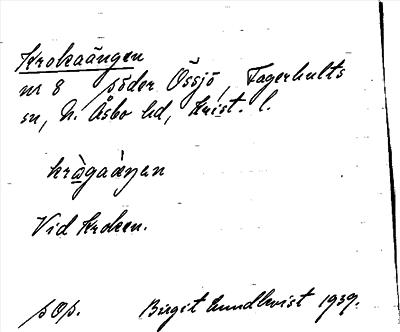 Krokaängen
nr 8 söder Össjö, Fagerhults
sn, N. Åsbo hd, Krist. l.
krågaän̂en
Vid Kroken.
sOp. Birgit Lundkvist 1939.